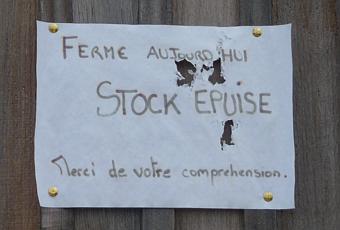 FERME AUJOURD'HUI
STOCK EPUISE
Merci de votre comprehension.